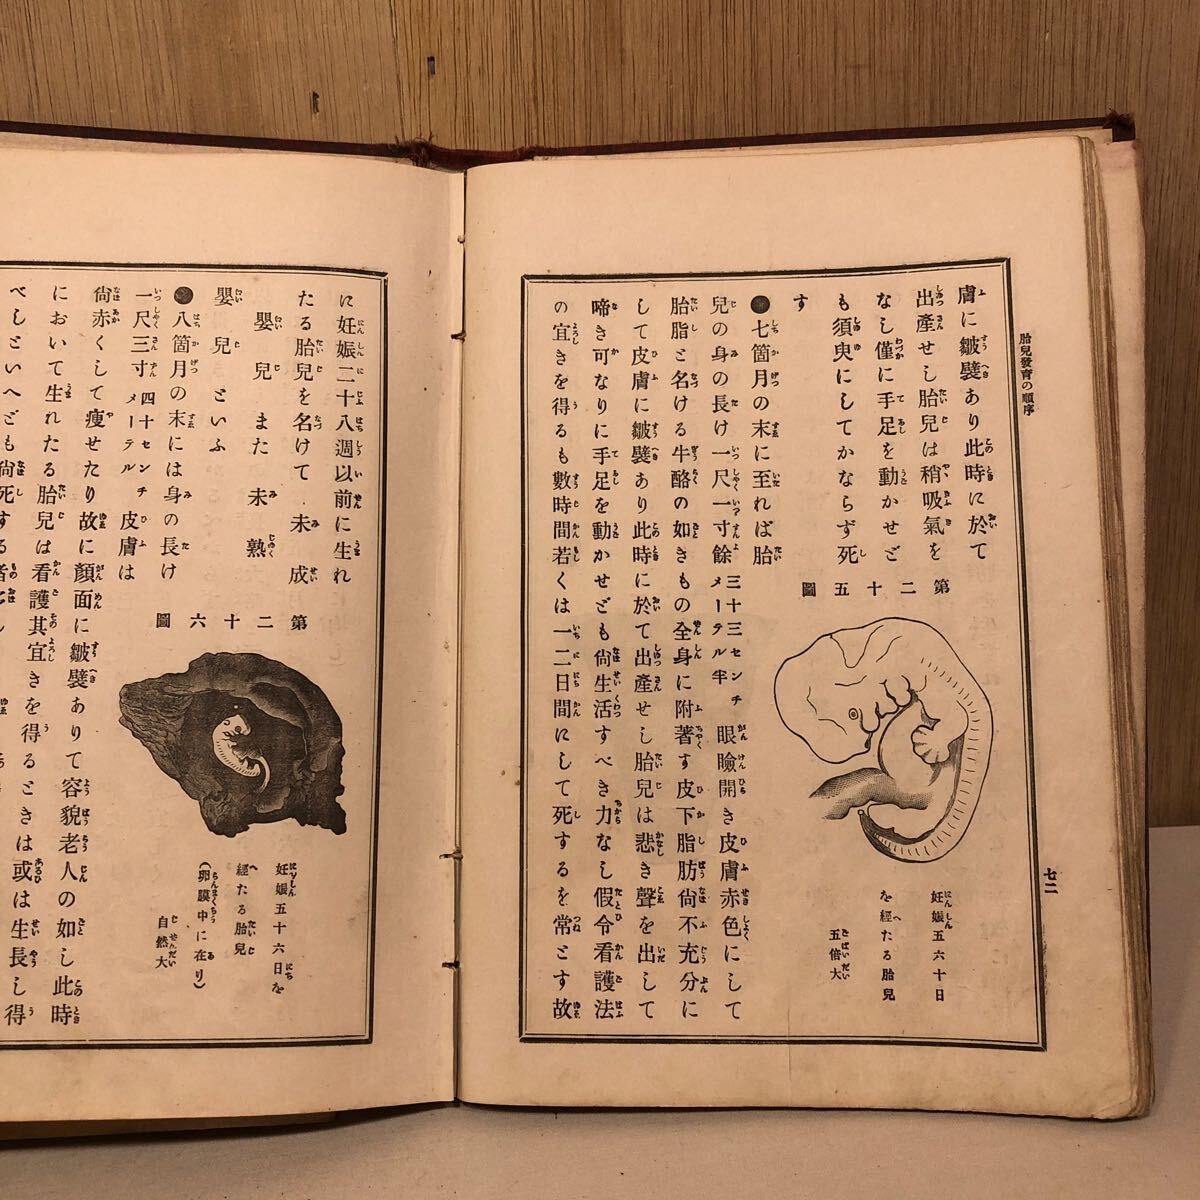 胎兒發育の順序
七二
膚に皺襞あり此時に於て
出產せし胎兒は稍吸氣を
なし僅に手足を動かせど
も須臾にしてかならず死
す
第二十五圖
妊娠五六十日
を經たる胎兒
五倍大
●七箇月の末に至れば胎
兒の身の長け一尺一寸餘三十三センチメーテル半眼瞼開き皮膚赤色にして
胎脂と名ける牛酪の如きもの全身に附著す皮下脂肪尙不充分に
して皮膚に皺襞あり此時に於て出產せし胎兒は悲き聲を出して
啼き可なりに手足を動かせども尙生活すべき力なし假令看護法
の宜きを得るも數時間若くは一二日間にして死するを常とす故
に妊娠二十八週以前に生れ
たる胎兒を名けて未成
嬰兒また未熟
嬰兒といふ
●八箇月の末には身の長け
一尺三寸四十センチメーテル皮膚は
第二十六圖
妊娠五十六日を
經たる胎兒
(卵膜中に在り)
自然大
尙赤くして瘦せたり故に顏面に皺襞ありて容貌老人の如し此時
において生れたる胎兒は看護其宜きを得るときは或は生長し得
べしといへども尙死する者